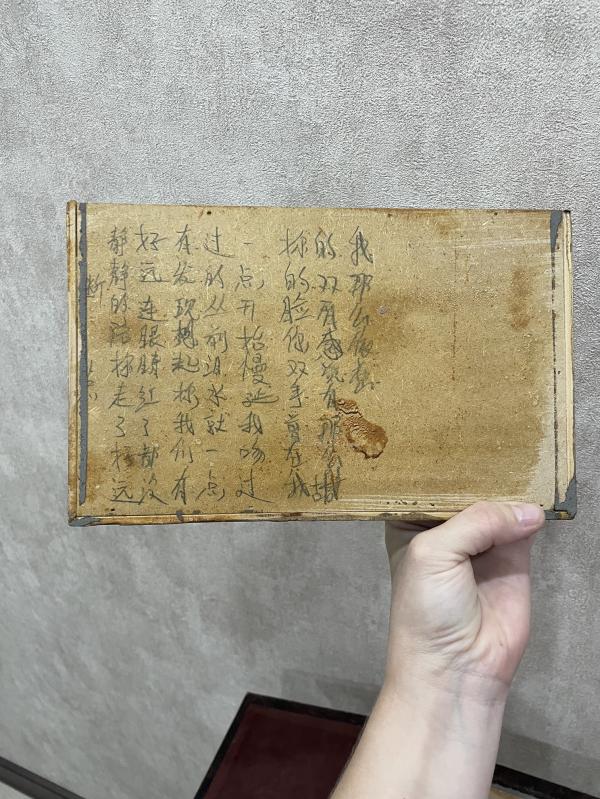 静静的陪你走了好远
好远连眼睛红了都没
有发现想起你我们有
过的丛前泪水就一点
一点开始慢延我吻过
你的脸你双手曾在我
的双肩感觉有那么甜
我那么依恋